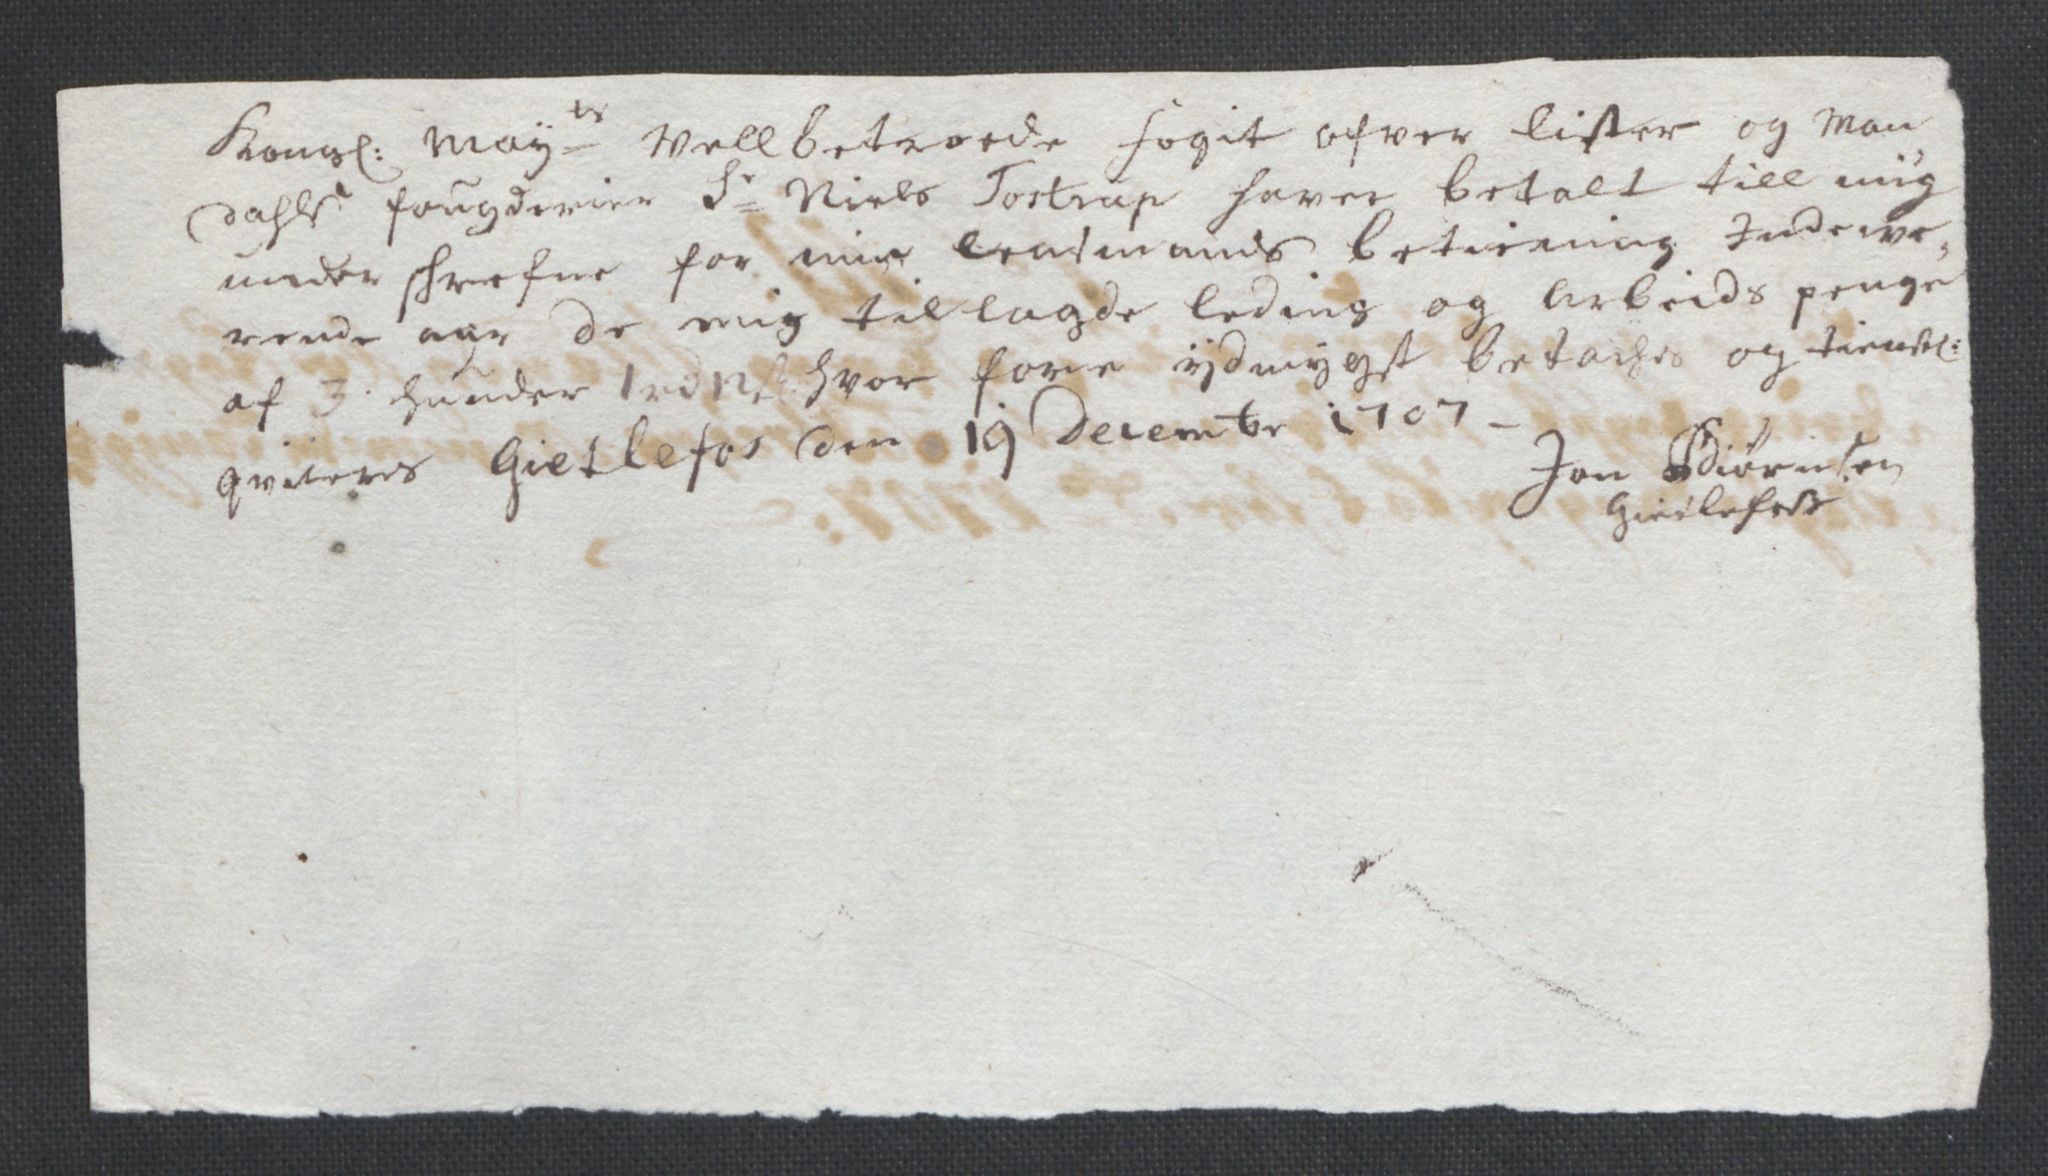 Kongl: May:ts Vellbetroede fogit ofver lister og Man
dahls fougderier Sr Niels Tostrup haver betalt till mig
under schrefne for min lensmands betiening Indeve,
rende aar de mig tillagde leding og Arbeids penge
af 3 hunder hvor fore ÿdmygst betaches og tienstl:
qviteres Gietlefos den 19 Decembr 1707 –
Jon Biørnsen
Gietlefoss